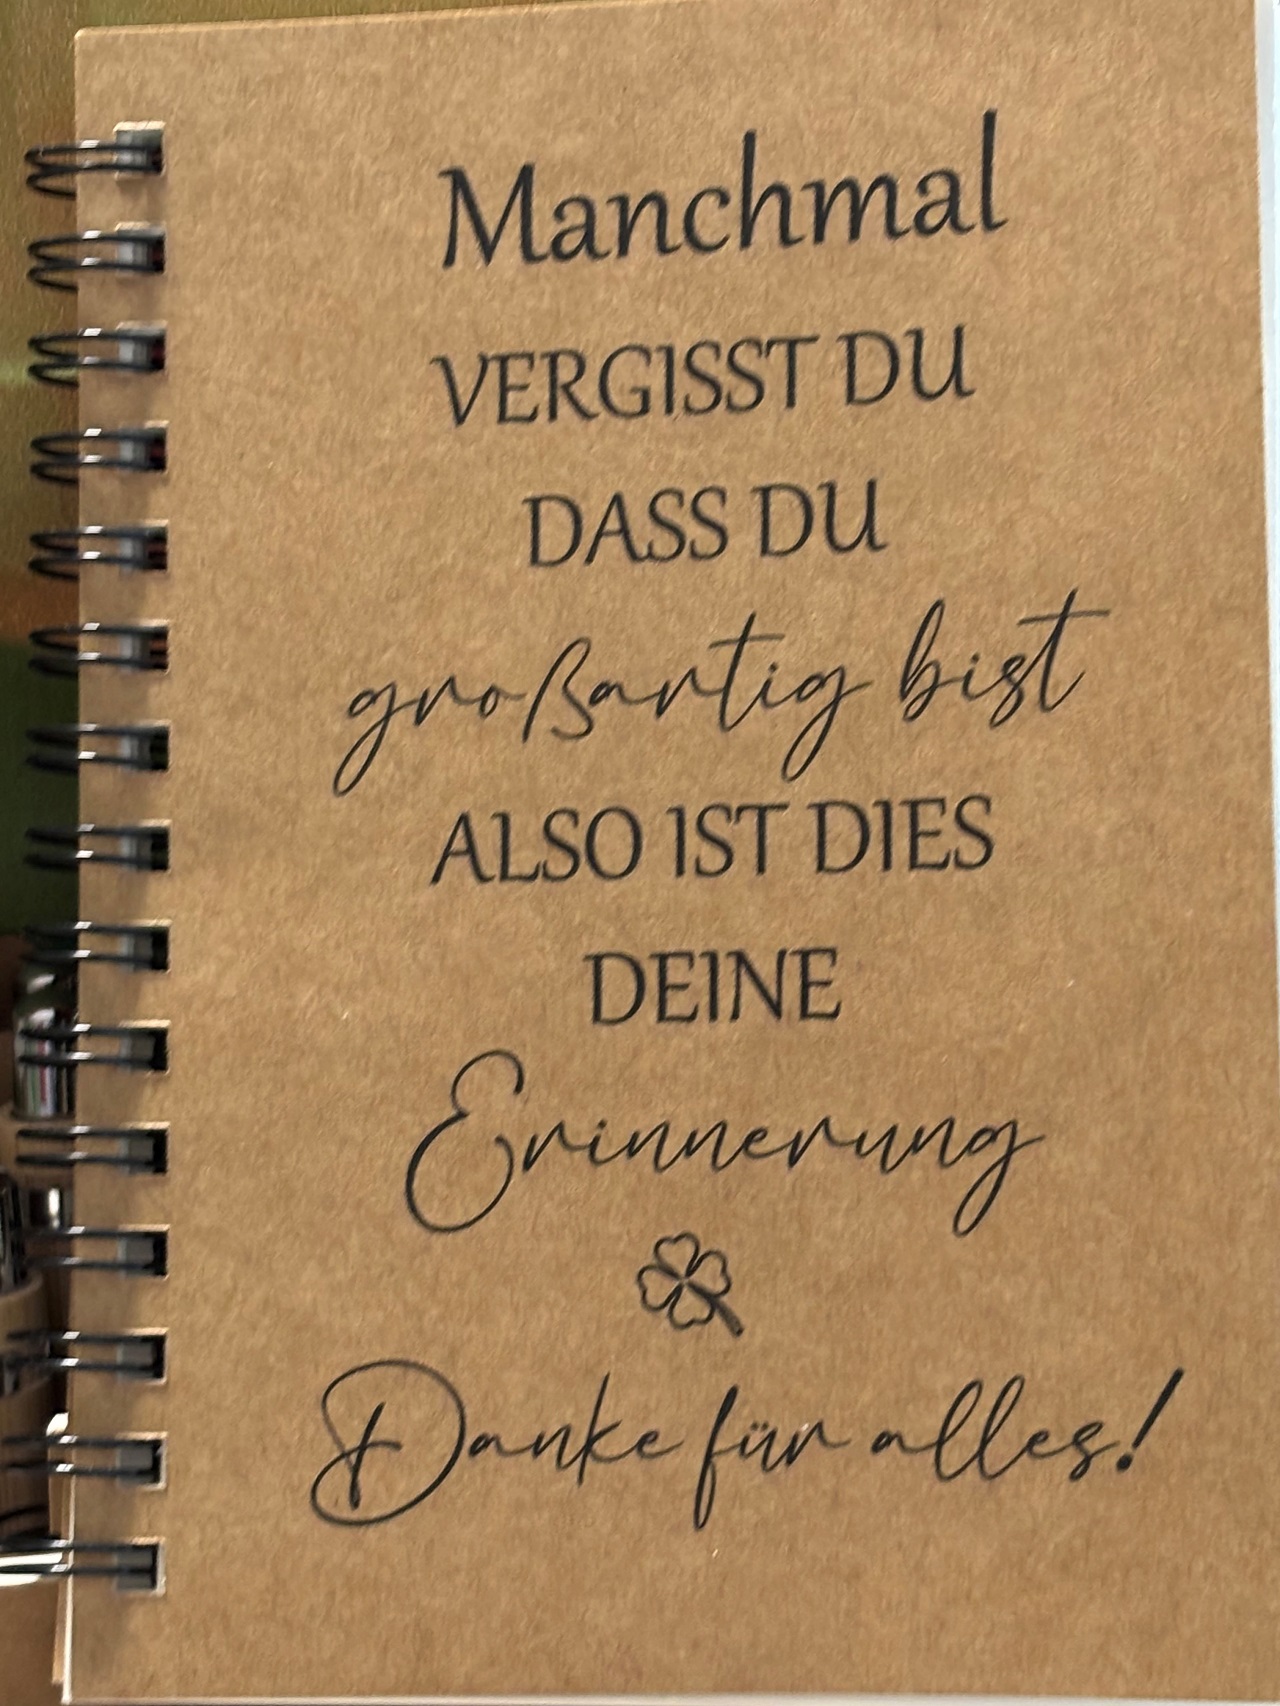 Manchmal
VERGISST DU
DASS DU
großartig bist
ALSO IST DIES
DEINE
Erinnerung
Danke für alles!